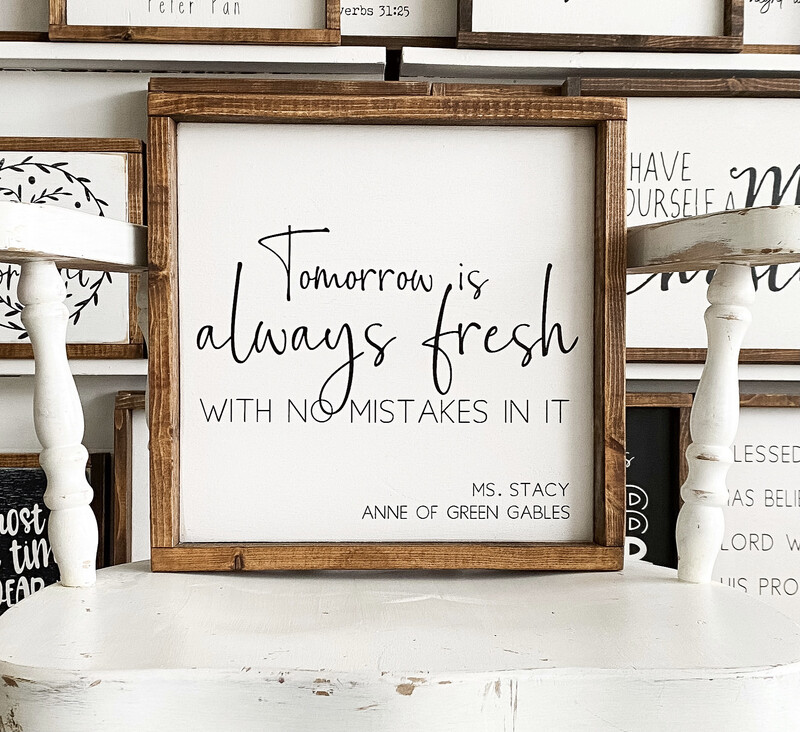 Peter Pan
verbs 31:25
HAVE
OURSELF A
Tomorrow is
always fresh
WITH NO MISTAKES IN IT
MS. STACY
ANNE OF GREEN GABLES
LESSED
LORD
HIS PRO